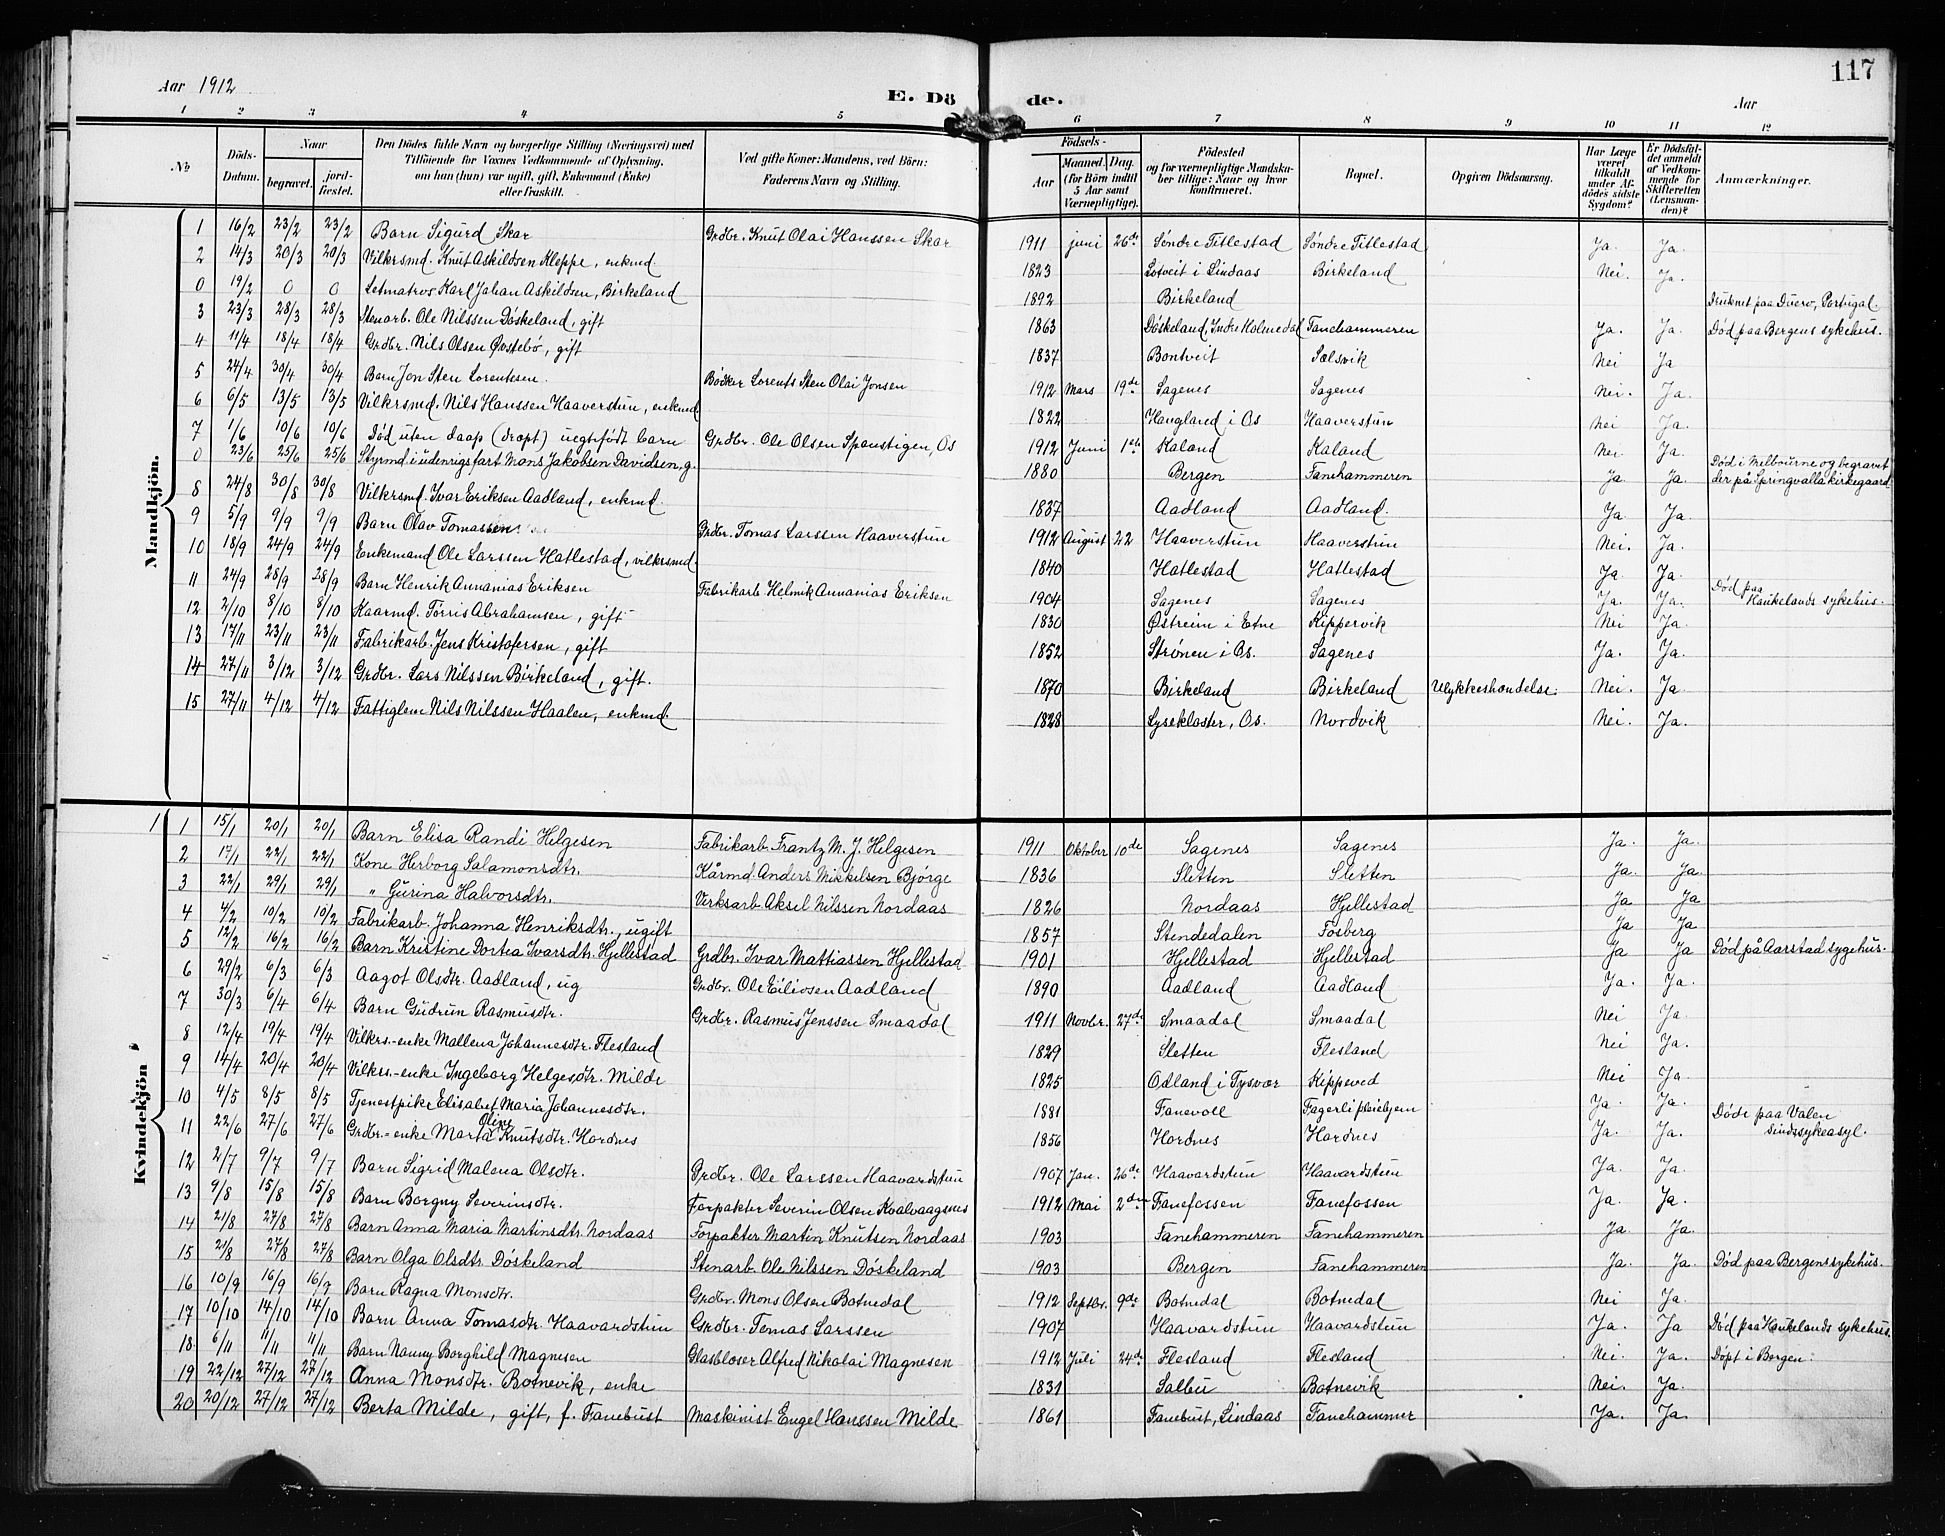 117
Aar 1912
E. Dö de.
Aar
1 2 3 4 5 6 7 8 9 10 11 12
No
Döds-Datum.
Naar
begravet.
jord-fæstet.
Den Dödes fulde Navn og borgerlige Stilling (Næringsvei) med Tilföiende for Voxnes Vedkommende af Oplysning, om han (hun) var ugift, gift, Enkemand (Enke) eller fraskilt.
Ved gifte Koner: Mandens, ved Börn: Faderens Navn og Stilling.
Födsels-
Aar
Maaned. Dag. (for Börn indtil 5 Aar samt Værnepligtige).
Födested og for værnepligtige Mandskaber tillige: Naar og hvor konfirmeret.
Bopæl.
Opgiven Dödsaarsag.
Har Læge været tilkaldt under Afdödes sidste Sygdom?
Er Dödsfaldet anmeldt af Vedkommende for Skifteretten (Lensmanden)?
Anmærkninger.
Mandkjön.
1 16/2 23/2 23/2 Barn Sigurd Skar Grdbr. Knut Olai Hanssen Skar 1911 juni 26de Söndre Titlestad Söndre Titlestad Ja. Ja.
2 14/3 20/3 20/3 Vilkrsmd. Knut Askildsen Kleppe, enkmd. 1823 Lötveit i Lindaas Birkeland Nei. Ja.
0 19/2 0 0 Letmatros Karl Johan Askildsen, Birkeland 1892 Birkeland Druknet paa Duero, Portugal.
3 23/3 28/3 28/3 Stenarb. Ole Nilssen Döskeland, gift 1863 Döskeland, Indre Holmedal Fanehammeren Ja. Ja. Död paa Bergens sykehus.
4 11/4 18/4 18/4 Grdbr. Nils Olsen Övstebö, gift 1837 Bontveit Sælsvik Nei Ja
5 24/4 30/4 30/4 Barn Jon Sten Lorentsen. Bödker Lorents Sten Olai Jonsen 1912 Mars 19de Sagenes Sagenes Nei. Ja.
6 6/5 13/5 13/5 Vilkrsmd. Nils Hanssen Haaverstun, enkmd. 1822 Haugland i Os Haaverstun Nei Ja.
7 1/6 10/6 10/6 Död uten daap (dræpt) uegtefödt barn Grdbr. Ole Olsen Spaustigen, Os 1912 Juni 1ste Kaland Kaland Nei Ja.
0 23/6 25/6 25/6 Styrmd i udenrigsfart Mons Jakobsen Davidsen, g. 1880 Bergen Fanehammeren Ja. Ja. Död i Melbourne og begravet der på Springvalla kirkegaard
8 24/8 30/8 30/8 Vilkrsmd. Ivar Eriksen Aadland, enkmd. 1837 Aadland Aadland. Ja Ja.
9 5/9 9/9 9/9 Barn Olav Tomassen Grdbr. Tomas Larssen Haaverstun 1912 August 22 Haaverstun Haaverstun Nei. Ja.
10 18/9 24/9 24/9 Enkemand Ole Larssen Hatlestad, vilkrsmd. 1840 Hatlestad Hatlestad Ja Ja.
11 24/9 28/9 28/9 Barn Henrik Annanias Eriksen Fabrikarb. Helmik Annanias Eriksen 1904 Sagenes Sagenes Ja. Ja. Död paa Haukelands sykehus.
12 2/10 8/10 8/10 Kaarmd. Torris Abrahamsen, gift 1830 Östreim i Etne Kippervik Nei Ja.
13 17/11 23/11 23/11 Fabrikarb. Jens Kristofersen, gift 1852 Strönen i Os. Sagenes Ja. Ja.
14 27/11 3/12 3/12 Grdbr. Lars Nilssen Birkeland, gift. 1870 Birkeland Birkeland Ulykkeshendelse. Nei. Ja
15 27/11 4/12 4/12 Fattiglem Nils Nilssen Haalen, enkmd. 1828 Lysekloster, Os. Nordvik Nei. Ja.
Kvindekjön
1 1 15/1 20/1 20/1 Barn Elisa Randi Helgesen Fabrikarb. Frantz M. J. Helgesen 1911 Oktober 10de Sagenes Sagenes Ja. Ja.
2 17/1 22/1 22/1 Kone Herborg Salamonsdtr. Kårmd. Anders Mikkelsen Björge 1836 Sletten Sletten Ja. Ja.
3 22/1 29/1 29/1 " Gurina Halvorsdtr. Verksarb. Aksel Nilssen Nordaas 1826 Nordaas Hjellestad Ja Ja
4 4/2 10/2 10/2 Fabrikarb. Johanna Henriksdtr., ugift 1857 Stendedalen Fösberg Ja Ja
5 12/2 16/2 16/2 Barn Kristine Dortea Ivarsdtr. Hjellestad Grdbr. Ivar Mattiassen Hjellestad 1901 Hjellestad Hjellestad Ja Ja Död på Aarstad sygehus.
6 29/2 6/3 6/3 Aagot Olsdtr. Aadland, ug Grdbr. Ole Eiliosen Aadland 1890 Aadland Aadland Ja. Ja.
7 30/3 6/4 6/4 Barn Gudrun Rasmusdtr. Grdbr. Rasmus Jenssen Smaadal 1911 Novbr. 27de Smaadal Smaadal Nei Ja
8 12/4 19/4 19/4 Vilkrs.-enke Mallena Johannesdtr. Flesland 1829 Sletten Flesland Nei Ja.
9 14/4 20/4 20/4 Vilkrs.-enke Ingeborg Helgesdtr. Milde 1825 Odland i Tysvær Kippeved Nei Ja
10 4/5 8/5 8/5 Tjenestpike Elisabet Maria Johannesdtr. 1881 Fanevoll Fagerli pleiehjem Ja. Ja.
11 22/6 27/6 27/6 Grdbr.-enke Marta Oline Knutsdtr. Hordnes 1856 Hordnes Hordnes Ja. Ja. Döde paa Valen sindssykeasyl.
12 2/7 9/7 9/7 Barn Sigrid Malena Olsdtr. Grdbr. Ole Larssen Haavardstun 1907 Jan. 26de Haavardstun Haavardstun Ja. Ja
13 9/8 15/8 15/8 Barn Borgny Severinsdtr. Forpakter Severin Olsen Kvalvaagsnes 1912 Mai 2den Fanefossen Fanefossen Ja. Ja.
14 21/8 27/8 27/8 Barn Anna Maria Martinsdtr. Nordaas Forpakter Martin Knutsen Nordaas 1903 Fanehammeren Fanehammeren Ja Ja.
15 21/8 27/8 27/8 Barn Olga Olsdtr. Döskeland Stenarb. Ole Nilssen Döskeland 1903 Bergen Fanehammeren Ja. Ja. Död paa Bergens sykehus.
16 10/9 16/9 16/9 Barn Ragna Monsdtr. Grdbr. Mons Olsen Botnedal 1912 Septbr. 9de Botnedal Botnedal Nei Ja.
17 10/10 14/10 14/10 Barn Anna Tomasdtr. Haavardstun Grdbr. Tomas Larssen 1907 Haavardstun Haavardstun Ja. Ja Död paa Haukelands sykehus.
18 6/11 11/11 11/11 Barn Nanny Borghild Magnesen Glasbloser Alfred Nikolai Magnesen 1912 Juli 24de Flesland Flesland Nei. Ja. Döpt i Bergen.
19 22/12 27/12 27/12 Anna Monsdtr. Botnevik, enke 1831 Salbu Botnevik Nei. Ja.
20 20/12 27/12 27/12 Berta Milde, gift, f. Fanebust Maskinist Engel Hanssen Milde 1861 Fanebust, Lindaas Fanehammer Ja. Ja.